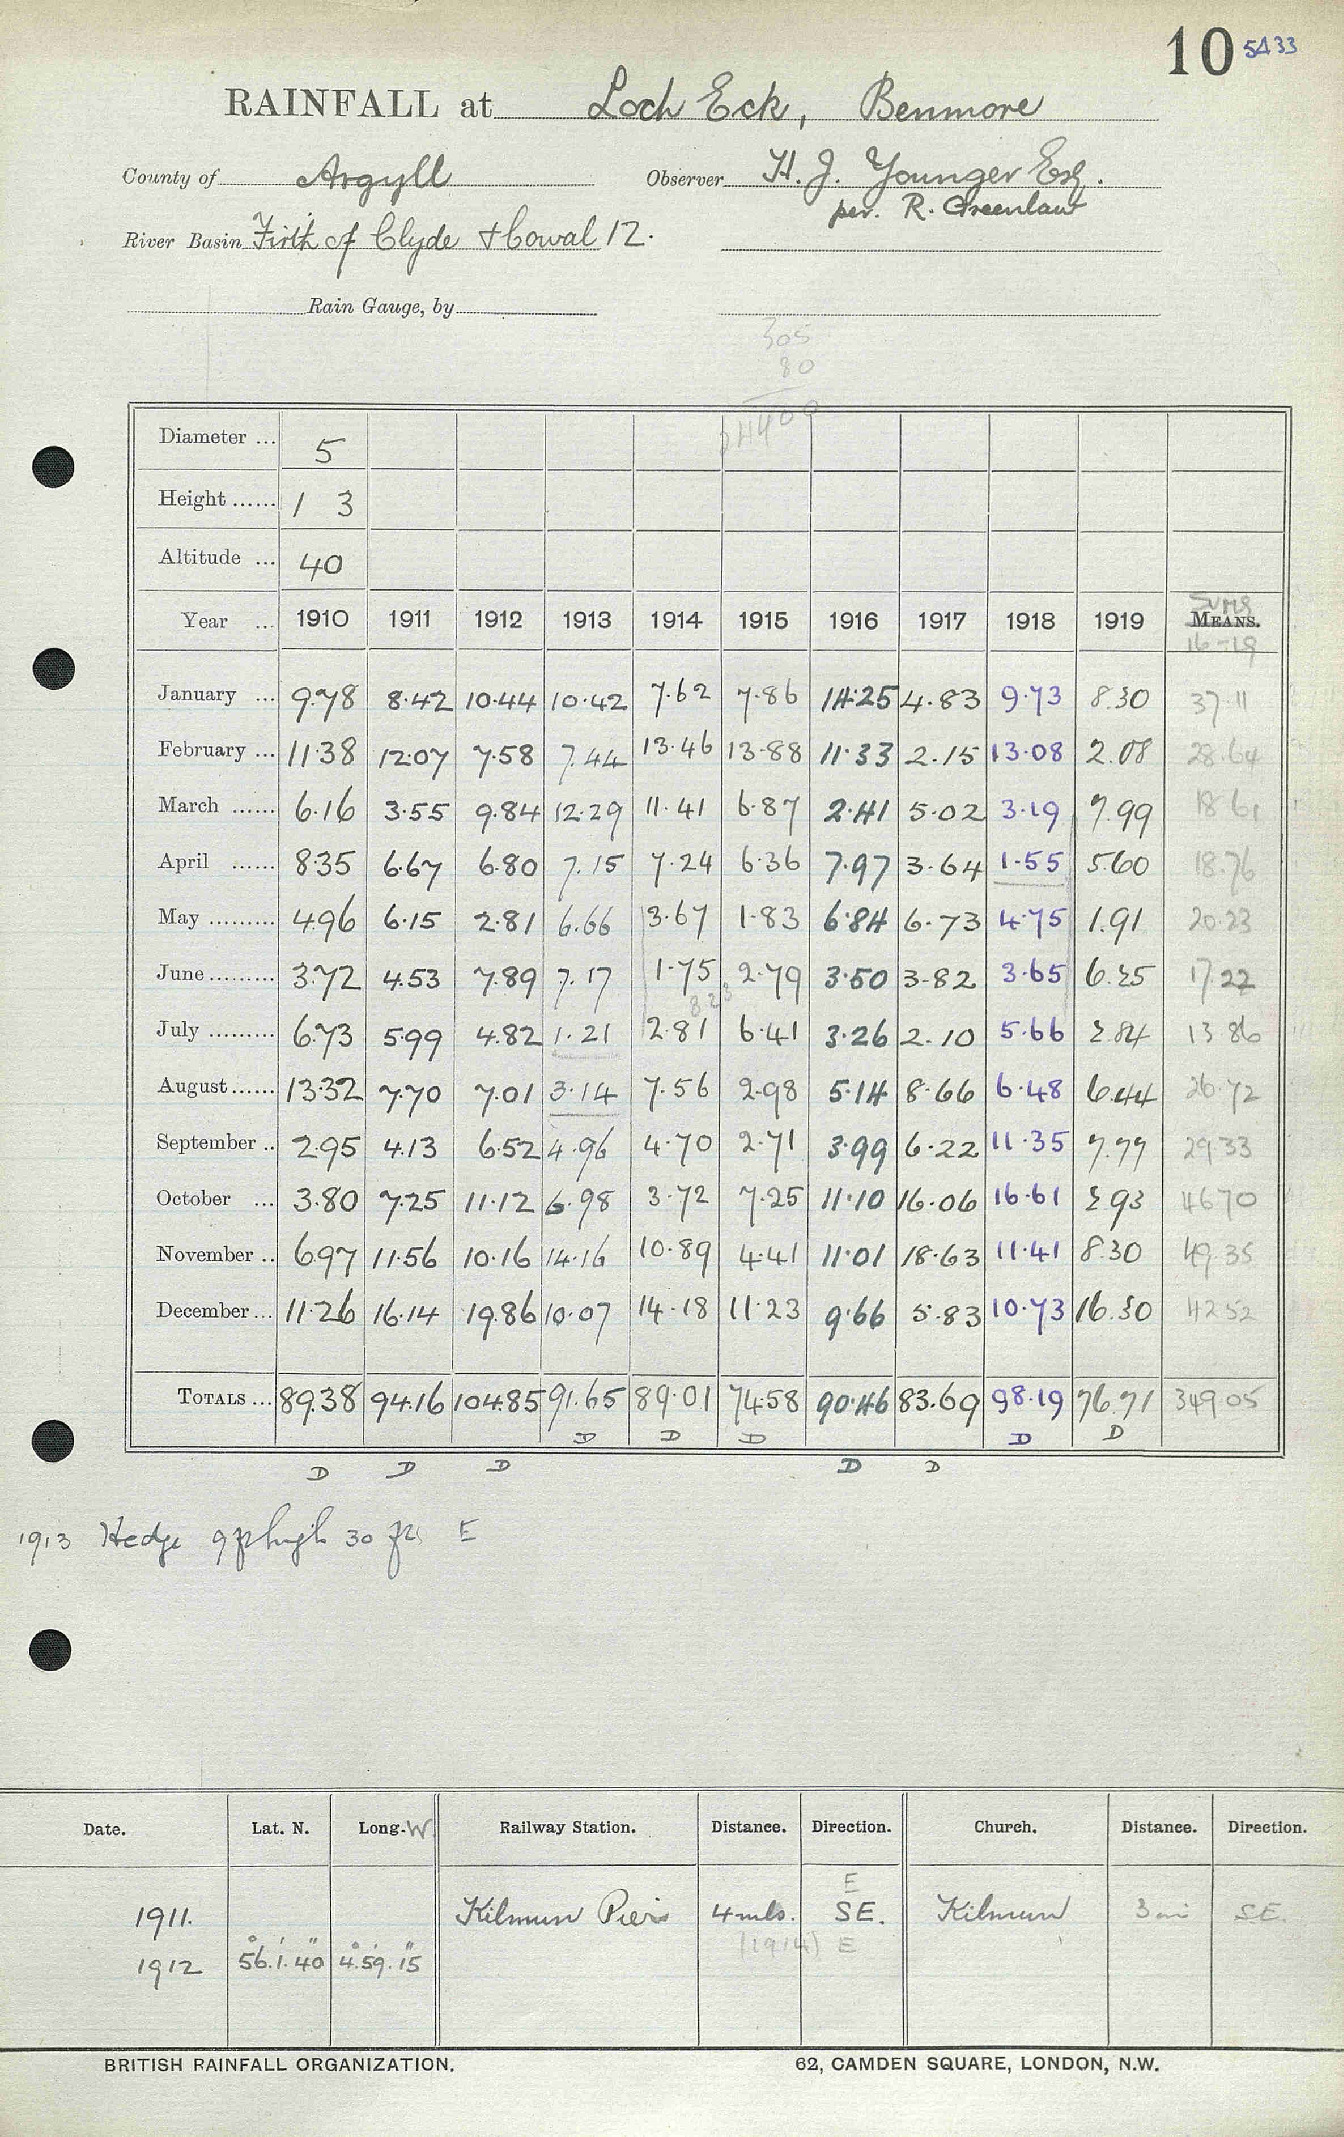 10 5433
RAINFALL at Loch Eck, Benmore
County of Argyll Observer H. J. Younger Esq.
per. R. Greenlaw
River Basin Firth of Clyde & Cowal 12.
Rain Gauge, by
305
80
24400
Diameter ... 5
Height ...... 1 3
Altitude ... 40
Sums
Year ... 1910 1911 1912 1913 1914 1915 1916 1917 1918 1919 MEANS.
16-19
January ... 9.78 8.42 10.44 10.42 7.62 7.86 14.25 4.83 9.73 8.30 37.11
February ... 11.38 12.07 7.58 7.44 13.46 13.88 11.33 2.15 13.08 2.08 28.64
March ...... 6.16 3.55 9.84 12.29 11.41 6.87 2.41 5.02 3.19 7.99 18.61
April ...... 8.35 6.67 6.80 7.15 7.24 6.36 7.97 3.64 1.55 5.60 18.76
May ......... 4.96 6.15 2.81 6.66 3.67 1.83 6.84 6.73 4.75 1.91 20.23
June ......... 3.72 4.53 7.89 7.17 1.75 2.79 3.50 3.82 3.65 6.25 17.22
8.23
July ......... 6.73 5.99 4.82 1.21 2.81 6.41 3.26 2.10 5.66 2.84 13.86
August ...... 13.32 7.70 7.01 3.14 7.56 2.98 5.14 8.66 6.48 6.44 26.72
September .. 2.95 4.13 6.52 4.96 4.70 2.71 3.99 6.22 11.35 7.77 29.33
October ... 3.80 7.25 11.12 6.98 3.72 7.25 11.10 16.06 16.61 2.93 46.70
November .. 6.97 11.56 10.16 14.16 10.89 4.41 11.01 18.63 11.41 8.30 49.35
December ... 11.26 16.14 19.86 10.07 14.18 11.23 9.66 5.83 10.73 16.30 42.52
TOTALS ... 89.38 94.16 104.85 91.65 89.01 74.58 90.46 83.69 98.19 76.71 349.05
D D D D D
D D D D D
1913 Hedge 9 ft high 30 ft E
Date. Lat. N. Long. W. Railway Station. Distance. Direction. Church. Distance. Direction.
E
1911. Kilmun Pier 4 mls. SE. Kilmun 3 mi SE.
(1914) E
1912 56° 1' 40" 4° 59' 15"
BRITISH RAINFALL ORGANIZATION. 62, CAMDEN SQUARE, LONDON, N.W.